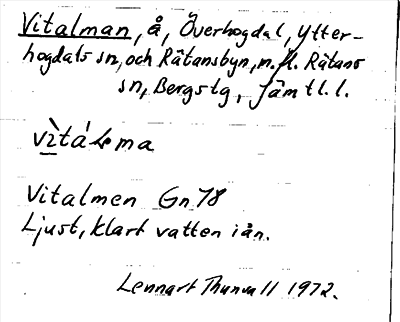 Vitalman, å, Överhogdal, Ytter-
hogdals sn, och Rätansbyn, m.fl. Rätans
sn, Bergs tg, Jämtl. l.
vìtáLma
Vitalmen Gn 78
Ljust, klart vatten i ån.
Lennart Thunvall 1972.